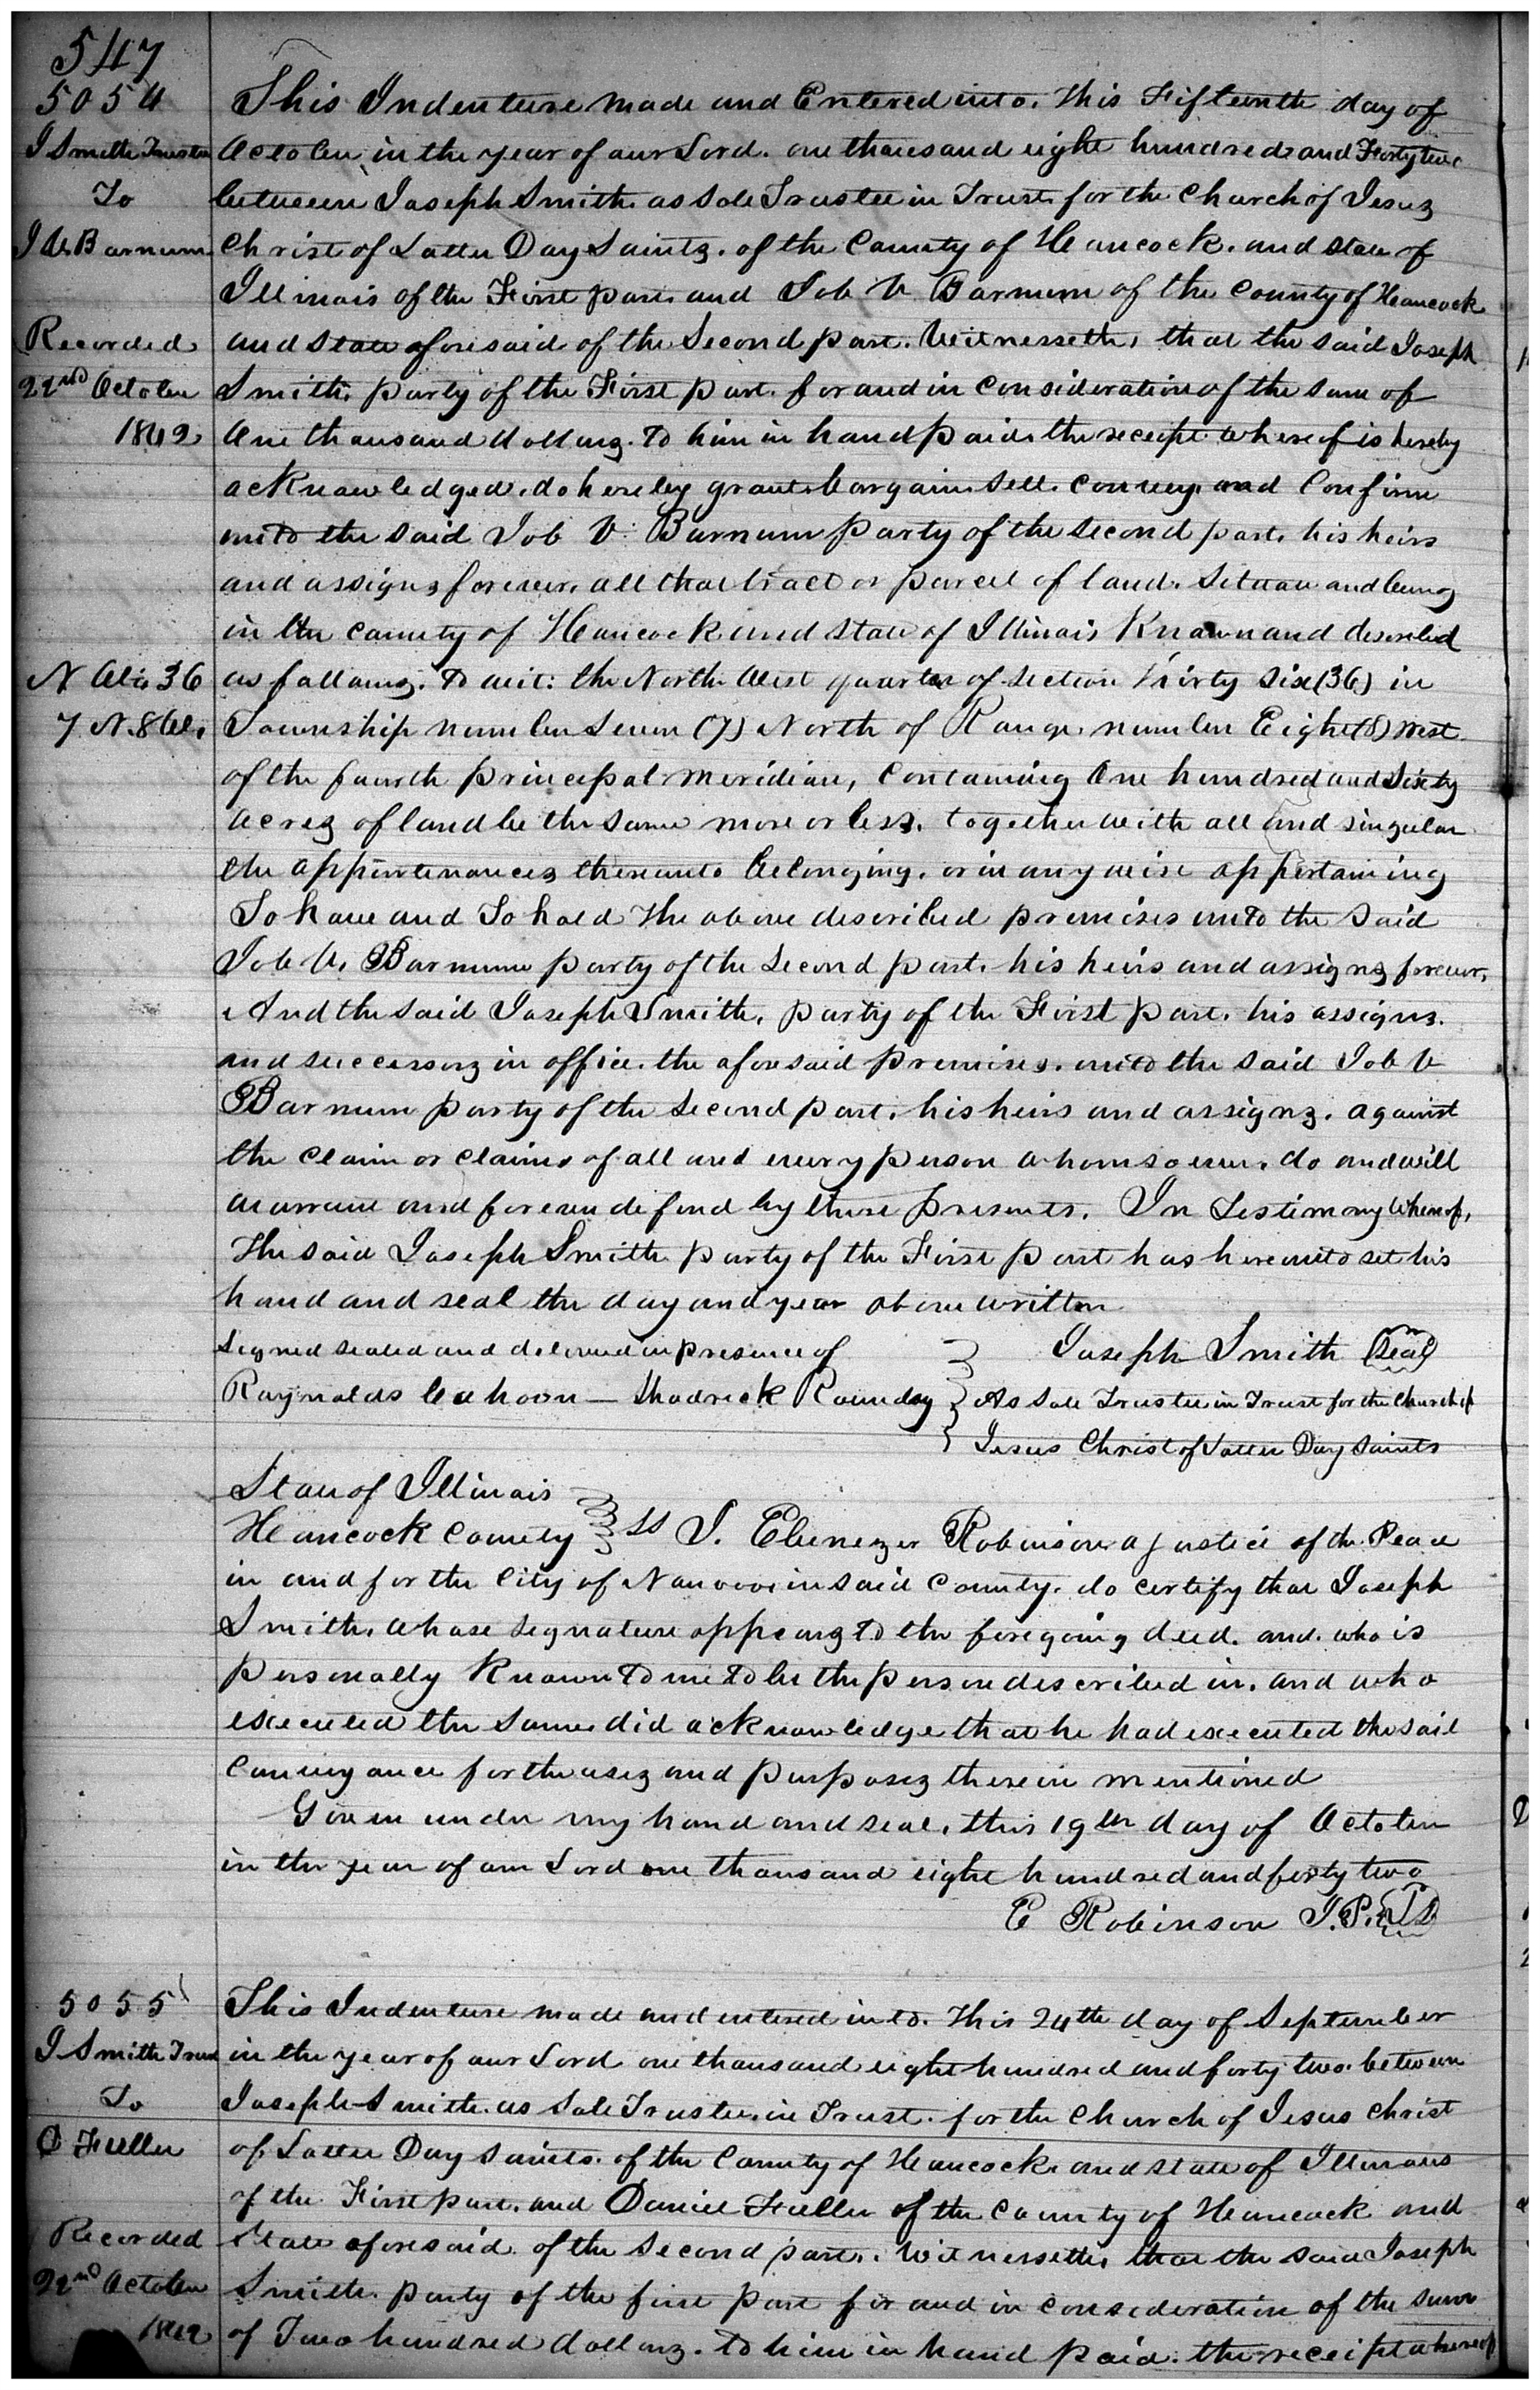 547
5054
J Smith Trustee
To
J V Barnum
Recorded
22nd October
1842
N W. 36
7 N. 8 W.
This Indenture made and Entered into. this Fifteenth day of
October in the year of our Lord. one thousand eight hundred and Forty two
between Joseph Smith. as Sole Trustee in Trust for the Church of Jesus
Christ of Latter Day Saints. of the County of Hancock. and State of
Illinois of the First part. and Job V Barnum of the County of Hancock
and State aforesaid of the Second part. Witnesseth, that the said Joseph
Smith. party of the First part. for and in Consideration of the sum of
One thousand dollars. To him in hand paid. the receipt whereof is hereby
acknowledged. do hereby grant. bargain. sell. convey. and Confirm
unto the said Job V. Barnum party of the second part. his heirs
and assigns forever. all that tract or parcel of land. Situate and being
in the County of Hancock and State of Illinois Known and described
as follows. To wit: the North West quarter of Section Thirty Six (36) in
Township number Seven (7) North of Range. number Eight (8) west
of the fourth principal meridian, Containing One hundred and Sixty
acres of land be the same more or less. together with all and singular
the appurtenances thereunto belonging. or in any wise appertaining
To have and To hold the above described premises unto the said
Job V. Barnum party of the Second part. his heirs and assigns forever,
And the said Joseph Smith. party of the First part. his assigns.
and successors in office. the aforesaid premises. unto the said Job V
Barnum party of the Second part. his heirs and assigns. against
the claim or claims of all and every person whomsoever. do and will
warrant and forever defend by these presents. In Testimony Whereof,
The said Joseph Smith party of the First part has hereunto set his
hand and seal the day and year above written
Signed sealed and delivered in presence of
Raynolds Cahoon — Shadrick Roundy
Joseph Smith (Seal)
As Sole Trustee in Trust for the Church of
Jesus Christ of Latter Day Saints
State of Illinois
Hancock County ss I. Ebenezer Robinson a justice of the Peace
in and for the City of Nauvoo in said County. do certify that Joseph
Smith. whose signature appears to the foregoing deed. and. who is
personally Known to me to be the person described in. and who
executed the same did acknowledge that he had executed the said
Conveyance for the uses and purposes therein mentioned
Given under my hand and seal, this 19th day of October
in the year of our Lord one thousand eight hundred and forty two
E Robinson J.P. LS
5055
J Smith Trus
To
D Fuller
Recorded
22nd October
1842
This Indenture made and entered into. this 24th day of September
in the year of our Lord one thousand eight hundred and forty two. between
Joseph Smith. as Sole Trustee. in Trust. for the Church of Jesus Christ
of Latter Day Saints. of the County of Hancock. and State of Illinois
of the First part. and Daniel Fuller of the County of Hancock and
State aforesaid. of the Second part. Witnesseth, that the said Joseph
Smith. party of the first part for and in consideration of the sum
of Two hundred dollars. To him in hand paid. the receipt whereof